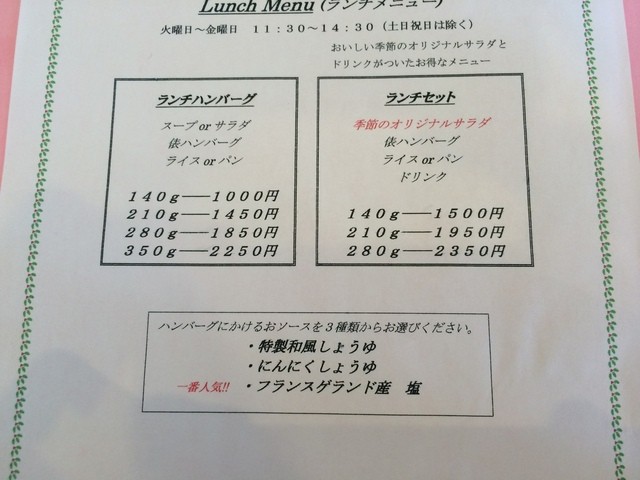 Lunch Menu (ランチメニュー)
火曜日～金曜日　１１：３０～１４：３０（土日祝日は除く）
おいしい季節のオリジナルサラダと
ドリンクがついたお得なメニュー
ランチハンバーグ
スープ or サラダ
俵ハンバーグ
ライス or パン
１４０ｇ――１０００円
２１０ｇ――１４５０円
２８０ｇ――１８５０円
３５０ｇ――２２５０円
ランチセット
季節のオリジナルサラダ
俵ハンバーグ
ライス or パン
ドリンク
１４０ｇ――１５００円
２１０ｇ――１９５０円
２８０ｇ――２３５０円
ハンバーグにかけるおソースを３種類からお選びください。
・特製和風しょうゆ
・にんにくしょうゆ
一番人気!! ・フランスゲランド産　塩